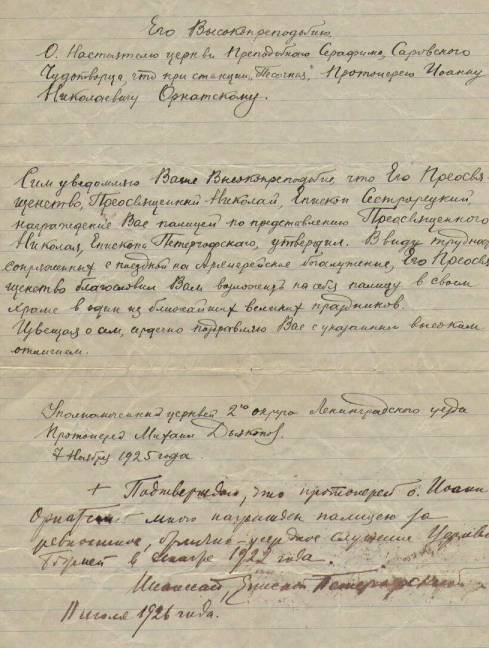 Его Высокопреподобию.
О. Настоятелю церкви Преподобного Серафима, Саровского
Чудотворца, что при станции "Песочная", Протоиерею Иоанну
Николаевичу Орнатскому.
Сим уведомляю Ваше Высокопреподобие, что Его Преосвя
щенство, Преосвященный Николай, Епископ Сестрорецкий,
награждение Вас палицей по представлению Преосвященного
Николая, Епископа Петергофского, утвердил. В виду трудност
сопряженных с поездкой на Архиерейское богослужение, Его Преосвя
щенство благословил Вам возложить на себя палицу в своем
храме в один из ближайших великих праздников.
Извещая о сем, сердечно поздравляю Вас с указанным высоким
отличием.
Уполномоченный церквей 2го округа Ленинградского уезда
Протоиерей Михаил Дьяконов.
7 Ноября 1925 года.
+ Подтверждаю, что протоиерей о. Иоанн
Орнатский мною награжден палицею за
ревностное, отлично-усердное служение Церкви
Божией в декабре 1922 года.
Епископ Петергофский
11 июля 1926 года.